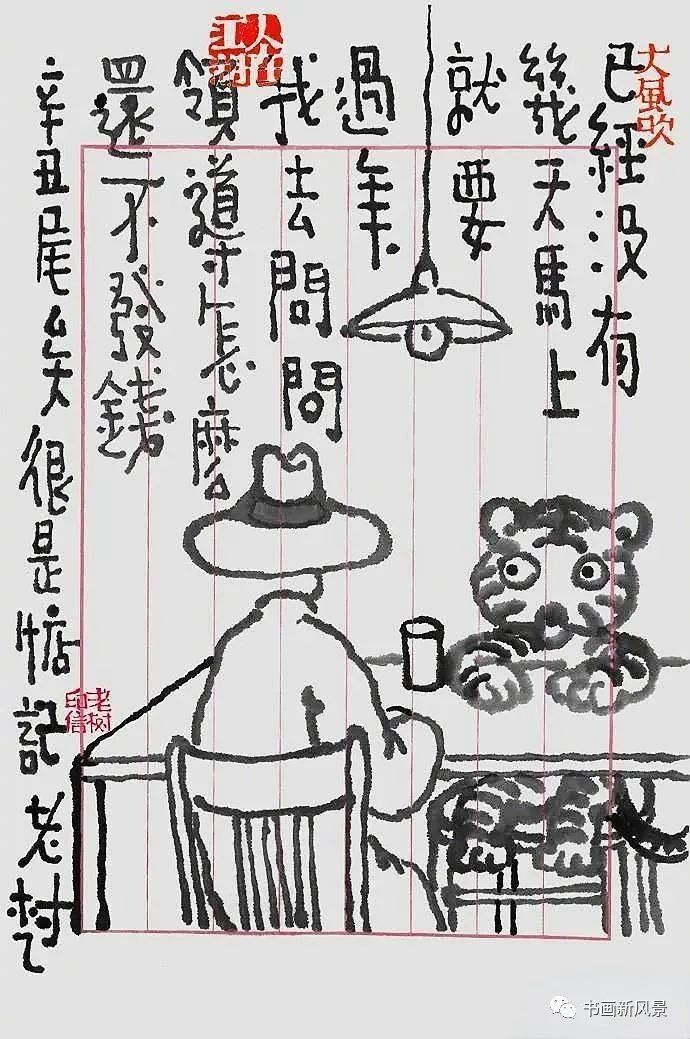 已經没有
幾天馬上
就要
過年
我去問問
領導怎麼
還不發錢
辛丑尾矣很是惦記老树乙
大風吹
老树
印信
书画新风景